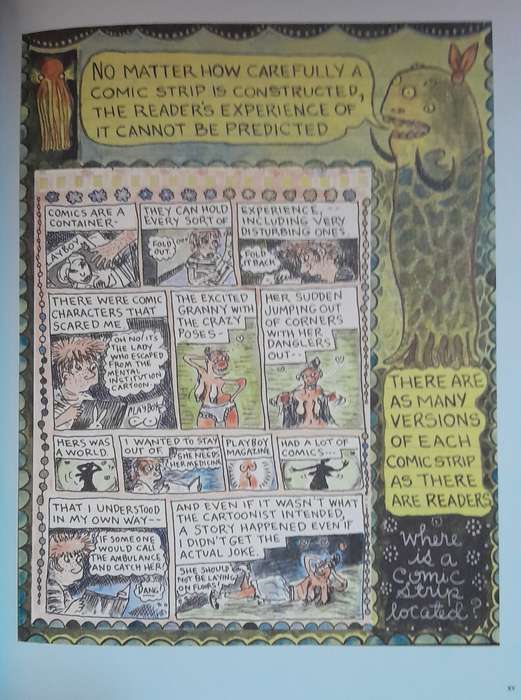 NO MATTER HOW CAREFULLY A
COMIC STRIP IS CONSTRUCTED,
THE READER'S EXPERIENCE OF
IT CANNOT BE PREDICTED
COMICS ARE A
CONTAINER-
AYBOY
THEY CAN HOLD
EVERY SORT OF
FOLD
OUT
EXPERIENCE,--
INCLUDING VERY
DISTURBING ONES
FOLD
IT BACK
THERE WERE COMIC
CHARACTERS THAT
SCARED ME
OH NO! ITS
THE LADY
WHO ESCAPED
FROM THE
MENTAL
INSTITUTION
CARTOON
PLAYBOY
THE EXCITED
GRANNY WITH
THE CRAZY
POSES-
HER SUDDEN
JUMPING OUT
OF CORNERS
WITH HER
DANGLERS
OUT--
HERS WAS
A WORLD
I WANTED TO STAY
OUT OF
SHE NEEDS
HER MEDICINE
PLAYBOY
MAGAZINE
HAD A LOT OF
COMICS...
THAT I UNDERSTOOD
IN MY OWN WAY--
IF SOMEONE
WOULD CALL
THE AMBULANCE
AND CATCH HER
DANG
AND EVEN IF IT WASN'T WHAT
THE CARTOONIST INTENDED,
A STORY HAPPENED EVEN IF
I DIDN'T GET THE
ACTUAL JOKE.
SHE SHOULD
NOT BE LAYING
ON
THERE ARE
AS MANY
VERSIONS
OF EACH
COMIC STRIP
AS THERE
ARE READERS
where
is a
comic
strip
located?
xv